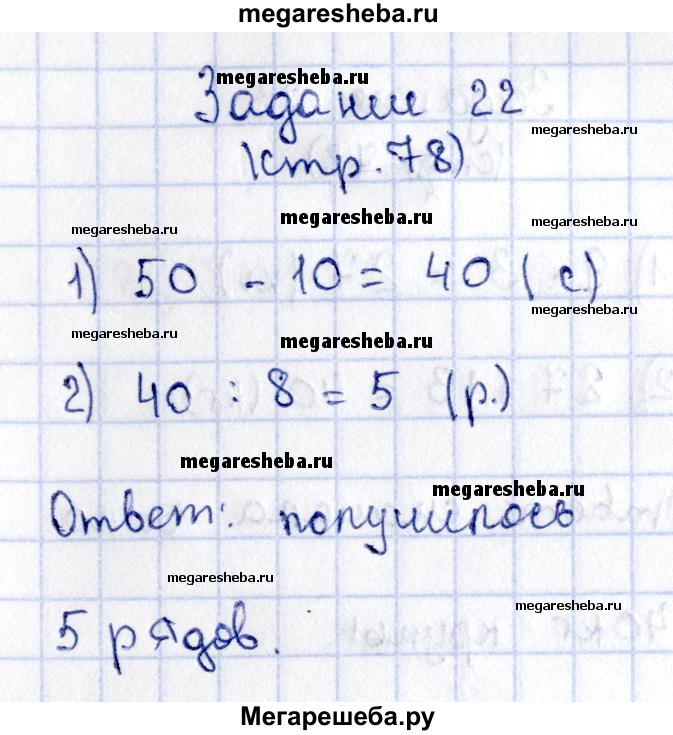 megaresheba.ru
megaresheba.ru
Задание 22
megaresheba.ru
(стр. 78)
megaresheba.ru
megaresheba.ru
megaresheba.ru
1) 50 - 10 = 40 (с.)
megaresheba.ru
megaresheba.ru
megaresheba.ru
2) 40 : 8 = 5 (р.)
megaresheba.ru
megaresheba.ru
Ответ: получилось
megaresheba.ru
megaresheba.ru
5 рядов.
Мегарешеба.ру